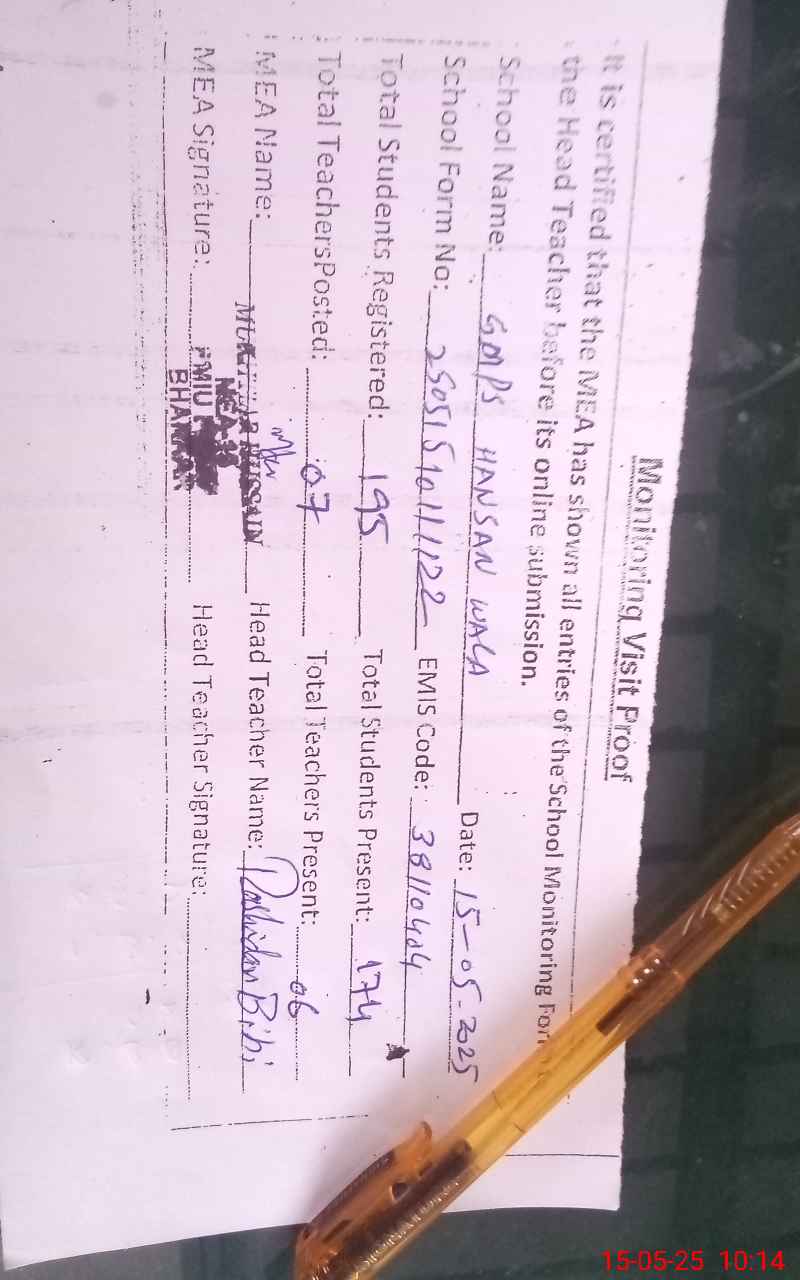 Monitoring Visit Proof
It is certified that the MEA has shown all entries of the School Monitoring Form
the Head Teacher before its online submission.
School Name: GMPS HANSAN WALA Date: 15-05-2025
School Form No: EMIS Code: 38110404
Total Students Registered: 195 Total Students Present: 174
Total TeachersPosted: 07 Total Teachers Present: 06
MEA Name: HUSSAIN Head Teacher Name: Rashidan Bibi
MEA Signature: Head Teacher Signature:
MEA-
PMIU
BHAKKAR
15-05-25 10:14